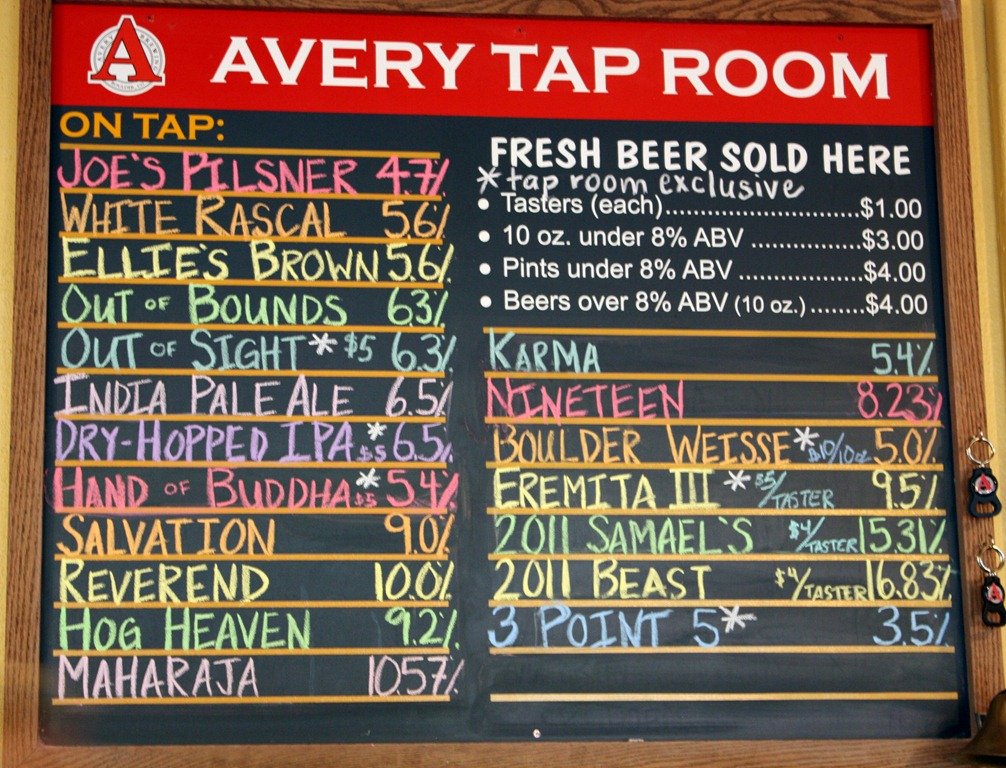 A
AVERY TAP ROOM
ON TAP:
JOE'S PILSNER 4.7%
WHITE RASCAL 5.6%
ELLIE'S BROWN 5.6%
OUT OF BOUNDS 6.3%
OUT OF SIGHT * $5 6.3%
INDIA PALE ALE 6.5%
DRY-HOPPED IPA * $5 6.5%
HAND OF BUDDHA * $5 5.4%
SALVATION 9.0%
REVEREND 10.0%
HOG HEAVEN 9.2%
MAHARAJA 10.57%
FRESH BEER SOLD HERE
* tap room exclusive
• Tasters (each)............................$1.00
• 10 oz. under 8% ABV ................$3.00
• Pints under 8% ABV ..................$4.00
• Beers over 8% ABV (10 oz.) ........$4.00
KARMA 5.4%
NINETEEN 8.23%
BOULDER WEISSE * $10/10oz 5.0%
EREMITA III * $5/TASTER 9.5%
2011 SAMAEL'S $4/TASTER 15.31%
2011 BEAST $4/TASTER 16.83%
3 POINT 5 * 3.5%